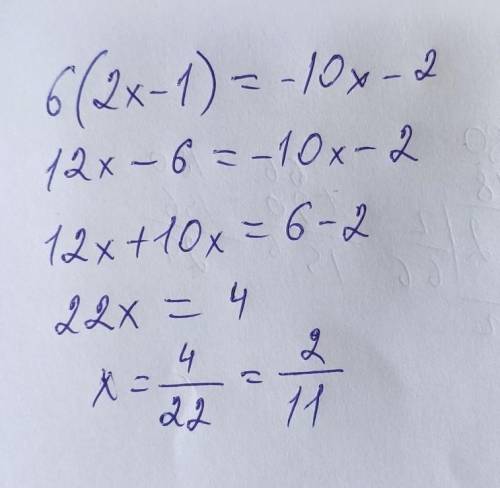 6(2x-1) = -10x-2
12x-6 = -10x-2
12x+10x = 6-2
22x = 4
x = 4/22 = 2/11